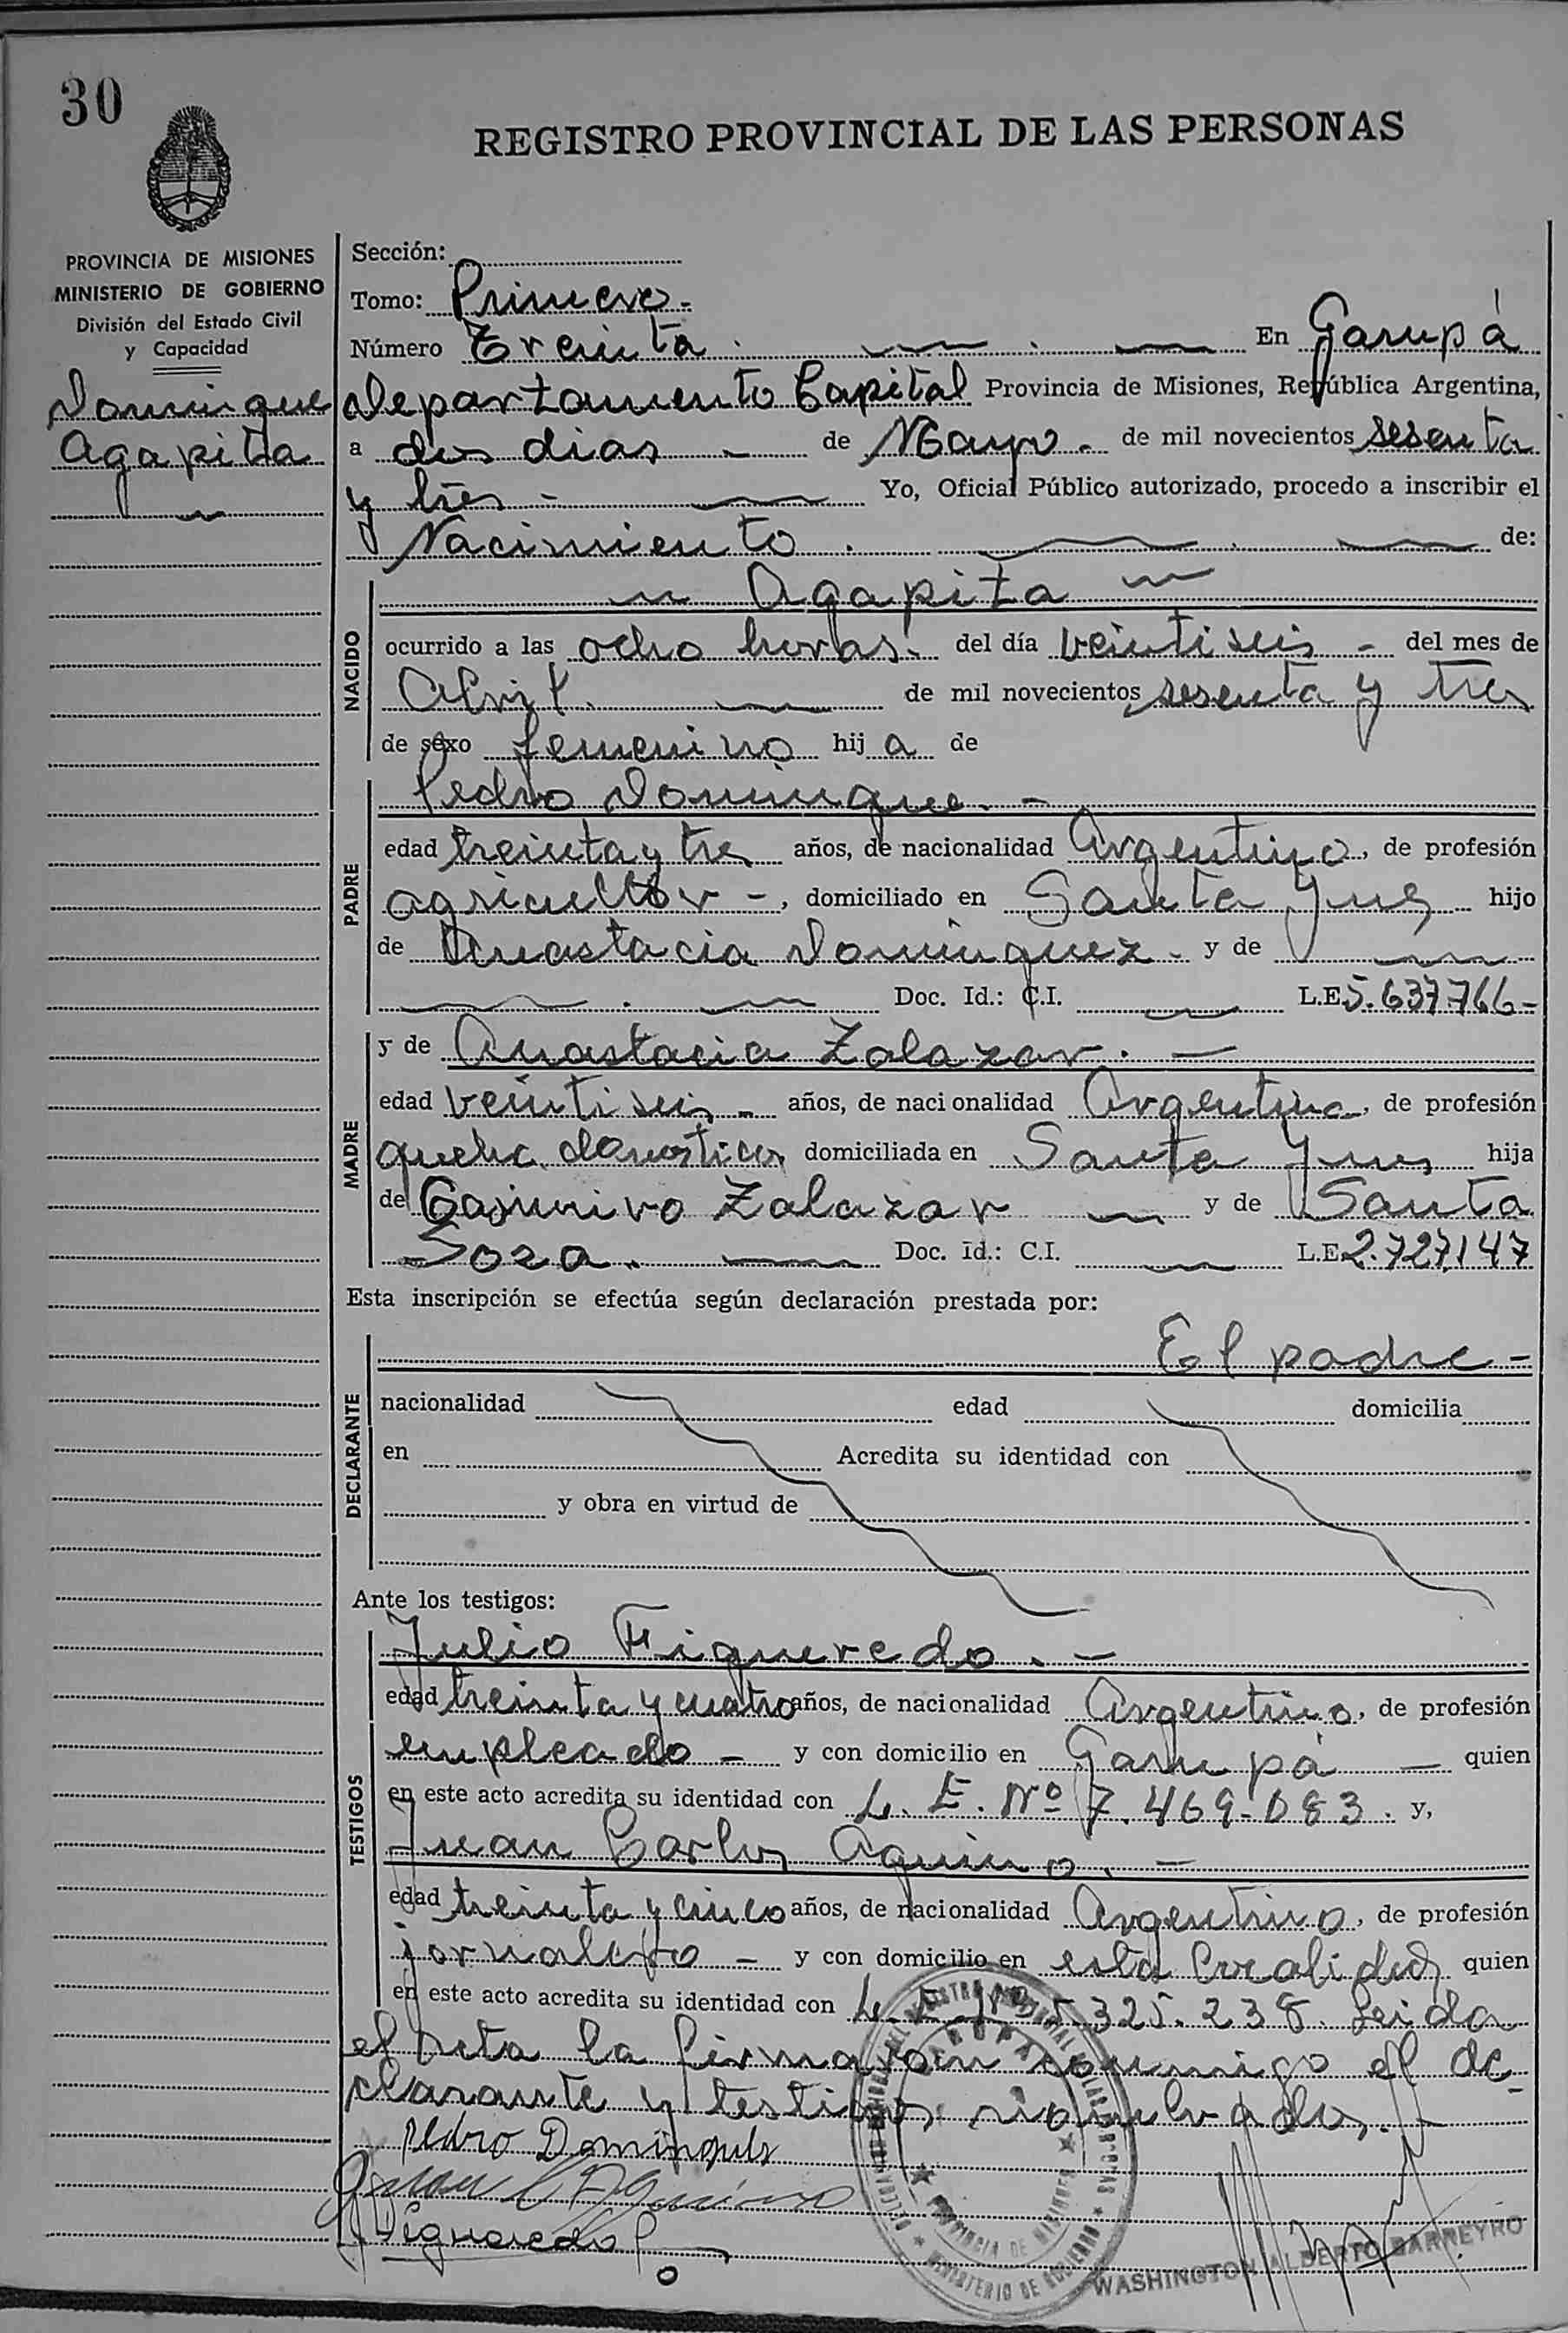 30
REGISTRO PROVINCIAL DE LAS PERSONAS
PROVINCIA DE MISIONES
MINISTERIO DE GOBIERNO
División del Estado Civil
y Capacidad
Domingue
Agapita
Sección:
Tomo: Primero.-
Número Treinta. En Garupá
Departamento Capital Provincia de Misiones, República Argentina,
a dos dias - de Mayo - de mil novecientos sesenta
y tres - Yo, Oficial Público autorizado, procedo a inscribir el
Nacimiento. de:
NACIDO
Agapita
ocurrido a las ocho horas.- del día veintiseis - del mes de
Abril. de mil novecientos sesenta y tres
de sexo femenino hija de
PADRE
Pedro Domingue. -
edad treinta y tres años, de nacionalidad Argentino, de profesión
agricultor -, domiciliado en Santa Ynes hijo
de Anastacia Dominguez - y de
Doc. Id.: C.I. L.E 5.637.766-
MADRE
y de Anastacia Zalazar. -
edad veintiseis - años, de nacionalidad Argentina, de profesión
domiciliada en Santa Ynes hija
de Casimiro Zalazar y de Santa
Soza. Doc. Id.: C.I. L.E 2.727.147
Esta inscripción se efectúa según declaración prestada por:
DECLARANTE
El padre -
nacionalidad edad domicilia
en Acredita su identidad con
y obra en virtud de
Ante los testigos:
TESTIGOS
Julio Figueredo. -
edad treinta y cuatro años, de nacionalidad Argentino, de profesión
empleado - y con domicilio en Garupá - quien
en este acto acredita su identidad con L. E. Nº 7.469.083. y,
Juan Carlos Aquino. -
edad treinta y cinco años, de nacionalidad Argentino, de profesión
jornalero - y con domicilio en esta localidad quien
en este acto acredita su identidad con L. E. Nº 5.325.238. Leida
el acta la firmaron conmigo el de-
clarante y testigos
Pedro Dominguez
Juan C Aquino
J Figueredo
PROVINCIA DE MISIONES
MINISTERIO DE GOBIERNO
WASHINGTON ALBERTO BARREYRO